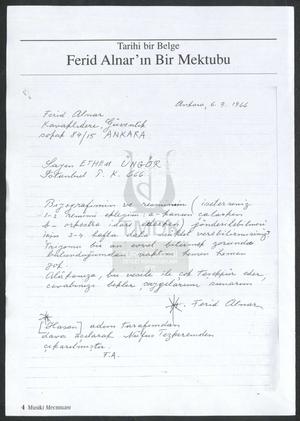 Tarihi bir Belge
Ferid Alnar'ın Bir Mektubu
Ankara, 6. 9. 1966
Ferid Alnar
Kavaklıdere, Güventepe
sokak 84/15 ANKARA.
Sayın ETHEM ÜNGÖR
İstanbul P. K. 666
Biyografimin ve resmimin (isterseniz
1-2 resmimi ekleyeyim: a- kanun çalarken
b- orkestra idare ederken) gönderilebilmesi
için 3-4 hafta daha mühlet verebilirmisiniz?
bir an evvel bitirmek zorunda
bulunduğumdan vaktim hemen hemen
yok.
Alâkanıza, bu vesile ile çok teşekkür eder,
cevabınızı bekler, saygılarımı sunarım.
Ferid Alnar
[Hasan] adını tarafımdan
dava açılarak Nüfus Tezkeremden
çıkarılmıştır.
F.A.
4 Musiki Mecmuası